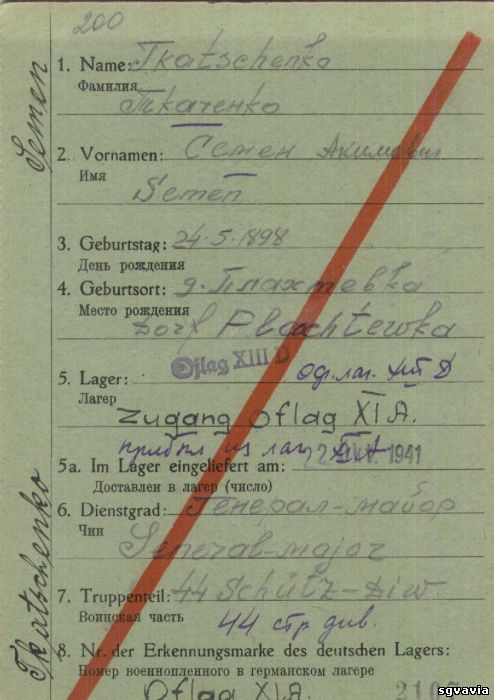 200
Semen
1. Name: Tkatschenko
Фамилия
Ткаченко
2. Vornamen: Семен Акимович
Имя
Semen
3. Geburtstag: 24.5.1898
День рождения
4. Geburtsort: д. Плахтевка
Место рождения
Dorf Plachtewka
Oflag XIII D
5. Lager: оф. лаг. XIII D
Лагерь
Zugang Oflag XI A.
прибыл из лаг. XI A
5a. Im Lager eingeliefert am: 1941
Доставлен в лагерь (число)
6. Dienstgrad: Генерал-майор
Чин
General-major
7. Truppenteil: 44 Schütz-Diw
Воинская часть
44 стр. див.
Tkatschenko
8. Nr. der Erkennungsmarke des deutschen Lagers:
Номер военнопленного в германском лагере
Oflag XI A.
sgvavia